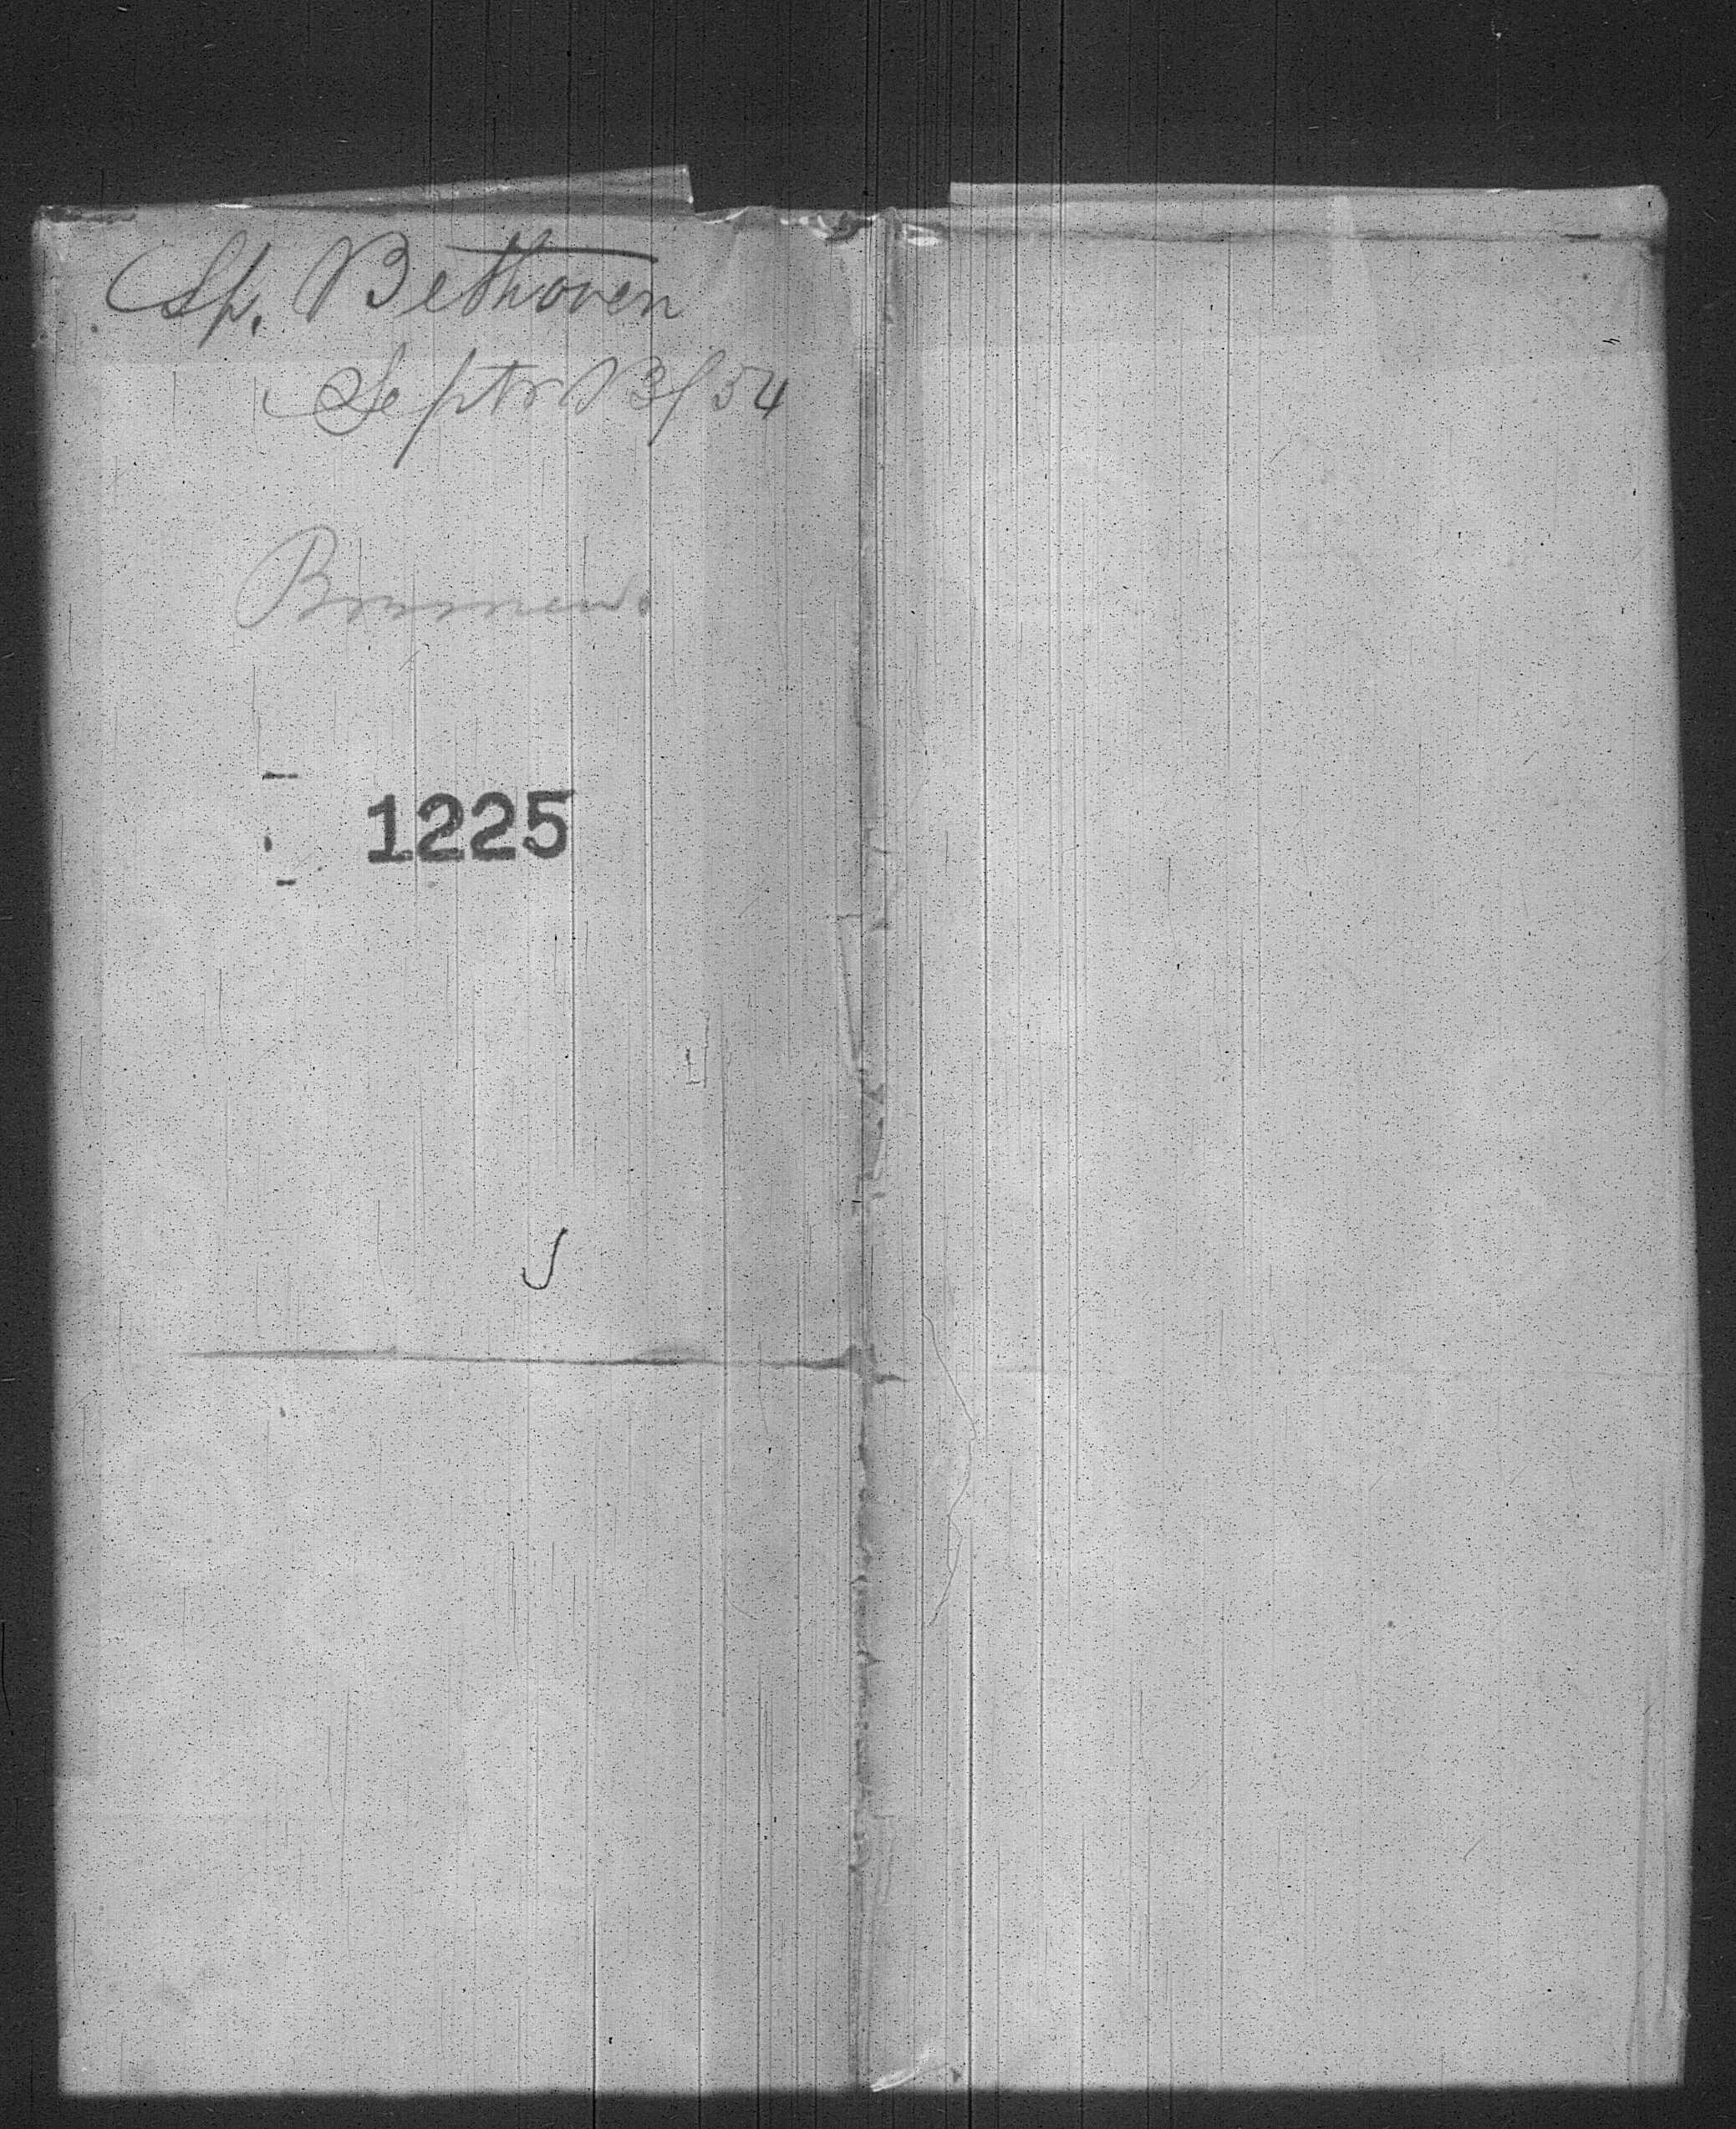 Sp. Bethoven
Septr 13/54
Bremen.
1225